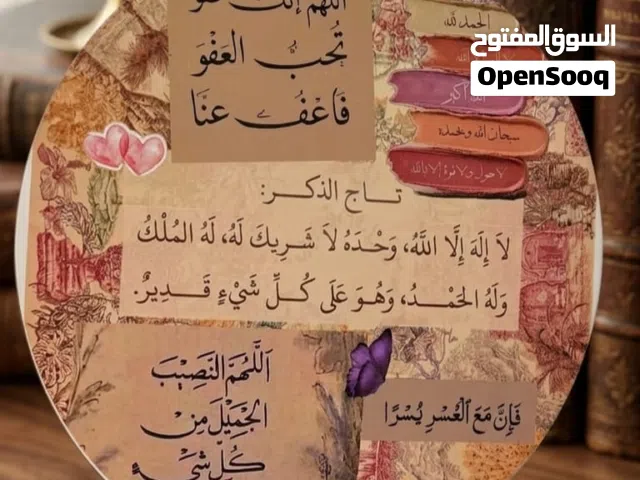 اللهم إنك عفو
تُحبُّ العَفْوَ
فَاعْفُ عنَّا
الحمد لله
الله أكبر
سبحان الله وبحمده
لا حول ولا قوة إلا بالله
السوق المفتوح
OpenSooq
تاج الذكر:
لاَ إِلَهَ إِلَّا اللَّهُ، وَحْدَهُ لاَ شَرِيكَ لَهُ، لَهُ المُلْكُ
وَلَهُ الحَمْدُ، وَهُوَ عَلَى كُلِّ شَيْءٍ قَدِيرٌ.
اَللَّهُمَّ النَّصِيْبَ
الْجَمِيْلَ مِنْ
كُلِّ شَيْءٍ
فَإِنَّ مَعَ ٱلْعُسْرِ يُسْرًا